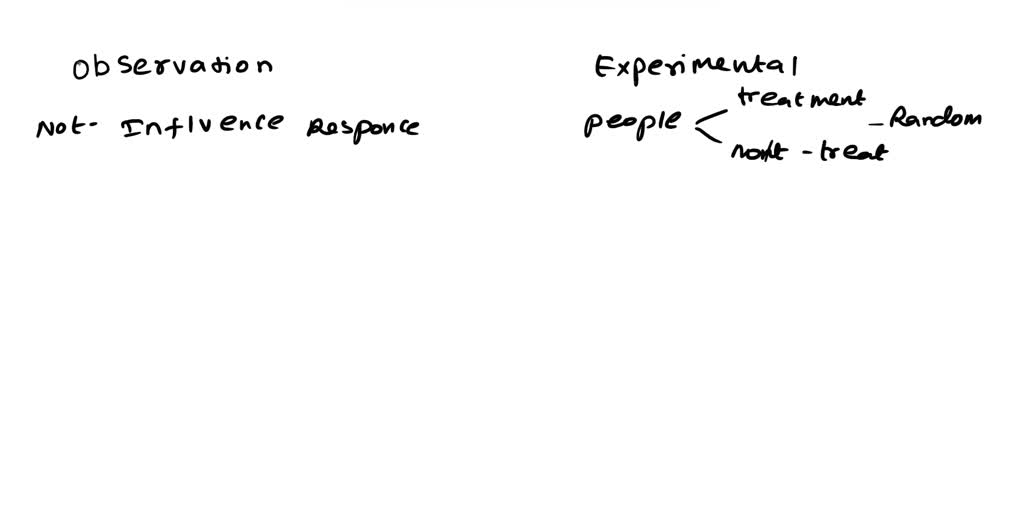 Observation
Not- Influence Responce
Experimental
people
treatment
- Random
- treat